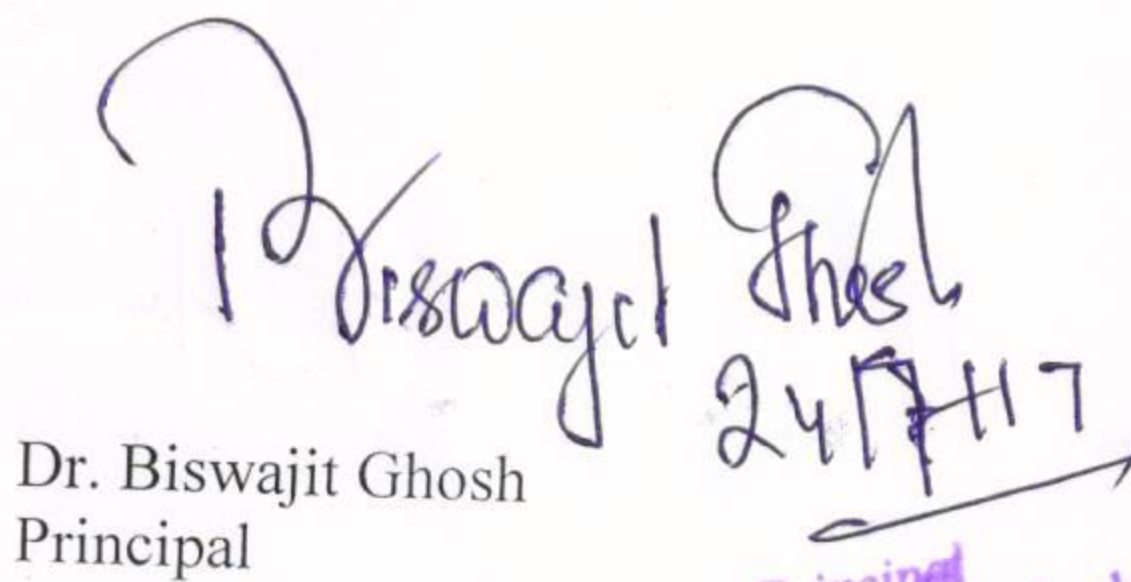 Biswajit Ghosh
24/7/17
Dr. Biswajit Ghosh
Principal
Principal